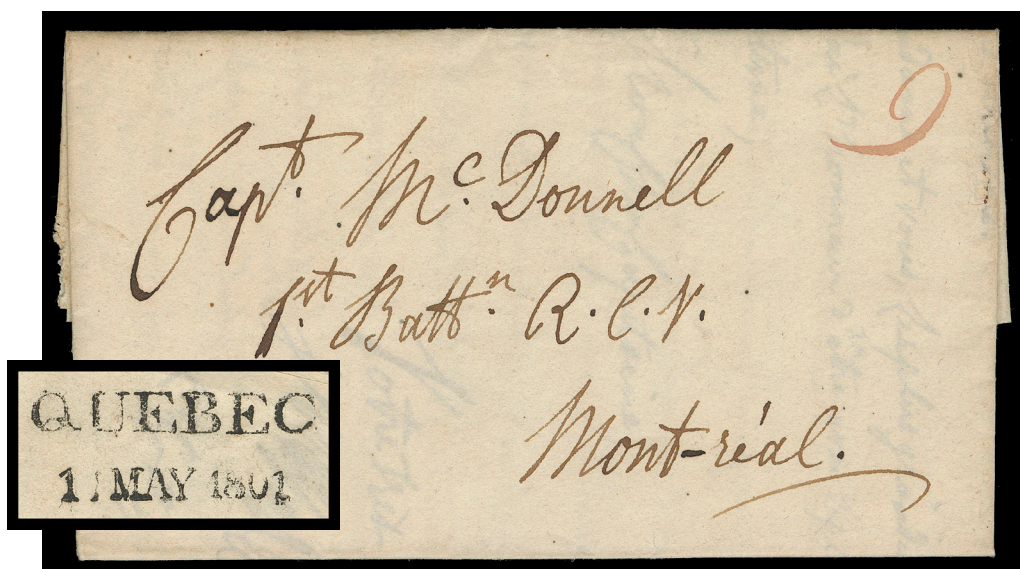 Capt. McDonnell
1st Battn. R. C. V.
Mont-réal.
9
QUEBEC
11 MAY 1801